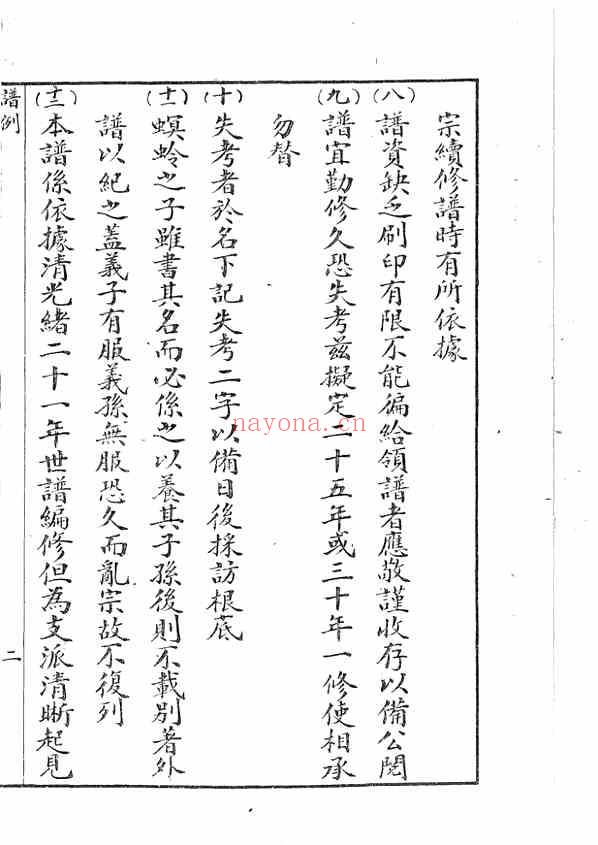 宗續修譜時有所依據
(八)譜資缺乏刷印有限不能徧給領譜者應敬謹收存以備公閱
(九)譜宜勤修久恐失考茲擬定二十五年或三十年一修使相承
勿替
(十)失考者於名下記失考二字以備日後採訪根底
(十一)螟蛉之子雖書其名而必係之以養其子孫後則不載別著外
譜以紀之蓋義子有服義孫無服恐久而亂宗故不復列
(十二)本譜係依據清光緒二十一年世譜編修但為支派清晰起見
譜例
二
nayona.cn